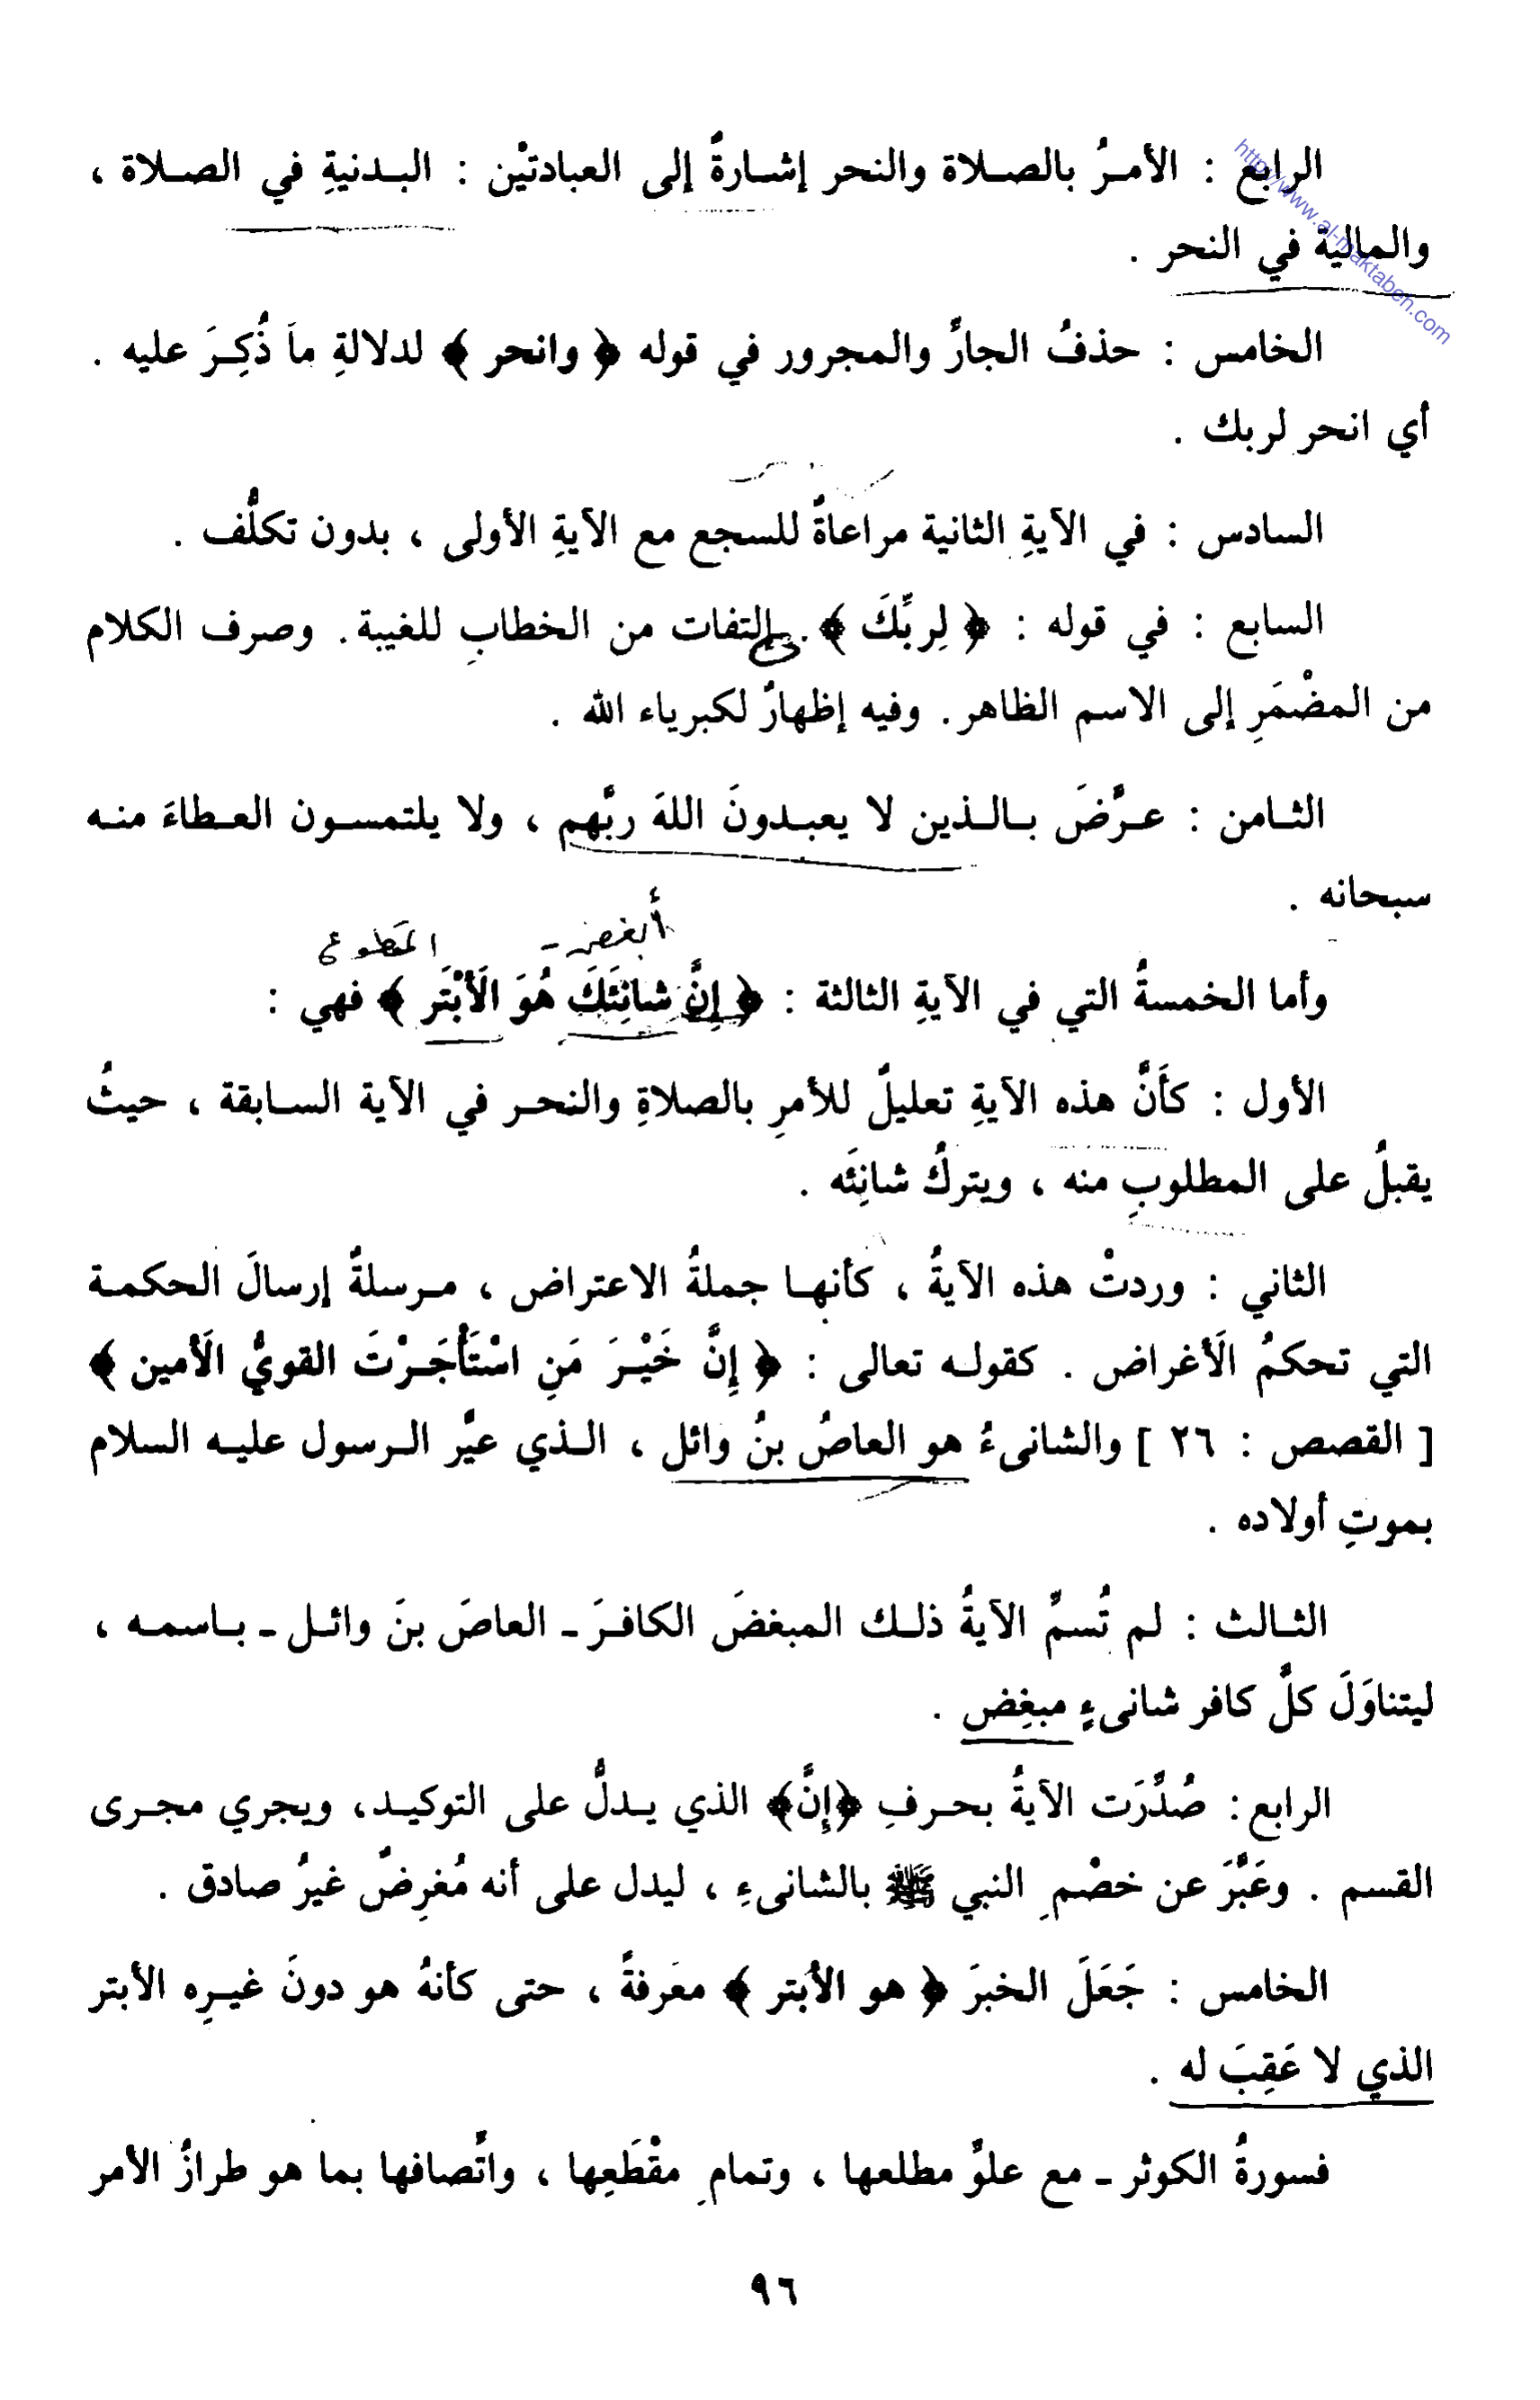 http://www.al-maktabeh.com
الرابع : الأمـرُ بالصـلاة والنحر إشـارةٌ إلى العبادتيْن : البـدنيةِ في الصـلاة ،
والمالية في النحر .
الخامس : حذفُ الجارِّ والمجرور في قوله ﴿ وانحر ﴾ لدلالةِ ما ذُكِـرَ عليه .
أي انحر لربك .
السادس : في الآيةِ الثانية مراعاةٌ للسجع مع الآيةِ الأولى ، بدون تكلُّف .
السابع : في قوله : ﴿ لِربِّكَ ﴾ . إلتفات من الخطابِ للغيبة . وصرف الكلام
من المضْمَرِ إلى الاسم الظاهر . وفيه إظهارٌ لكبرياء الله .
الثـامن : عـرَّضَ بـالـذين لا يعبـدونَ اللهَ ربَّهم ، ولا يلتمسـون العـطاءَ منـه
سبحانه .
أبغض - المقطوع
وأما الخمسةُ التي في الآيةِ الثالثة : ﴿ إِنَّ شانِئَكَ هُوَ الَأبْتَر ﴾ فهي :
الأول : كأَنَّ هذه الآيةِ تعليلٌ للأمرِ بالصلاةِ والنحـر في الآية السـابقة ، حيثُ
يقبلُ على المطلوبِ منه ، ويتركُ شانِئَه .
الثاني : وردتْ هذه الآيةُ ، كأنهـا جملةُ الاعتراض ، مـرسلةٌ إرسالَ الحكمـة
التي تحكمُ الَأغراض . كقولـه تعالى : ﴿ إِنَّ خَيْـرَ مَنِ اسْتَأْجَـرْتَ القويُّ الَأمين ﴾
[ القصص : ٢٦ ] والشانىءُ هو العاصُ بنُ وائل ، الـذي عيَّر الـرسول عليـه السلام
بموتِ أولاده .
الثـالث : لم تُسمِّ الآيةُ ذلـك المبغضَ الكافـرَ ـ العاصَ بنَ وائـل ـ بـاسمـه ،
ليتناوَلَ كلَّ كافر شانىءٍ مبغِض .
الرابع : صُدِّرَت الآيةُ بحـرفِ ﴿إِنَّ﴾ الذي يـدلُّ على التوكيـد ، ويجري مجـرى
القسم . وعَبَّرَ عن خصْمِ النبي ﷺ بالشانىءِ ، ليدل على أنه مُغرِضٌ غيرُ صادق .
الخامس : جَعَلَ الخبرَ ﴿ هو الأبتر ﴾ معَرفةً ، حتى كأنهُ هو دونَ غيـرِه الأبتر
الذي لا عَقِبَ له .
فسورةُ الكوثر ـ مع علوِّ مطلعها ، وتمامِ مقْطَعِها ، واتِّصافها بما هو طرازُ الأمر
٩٦